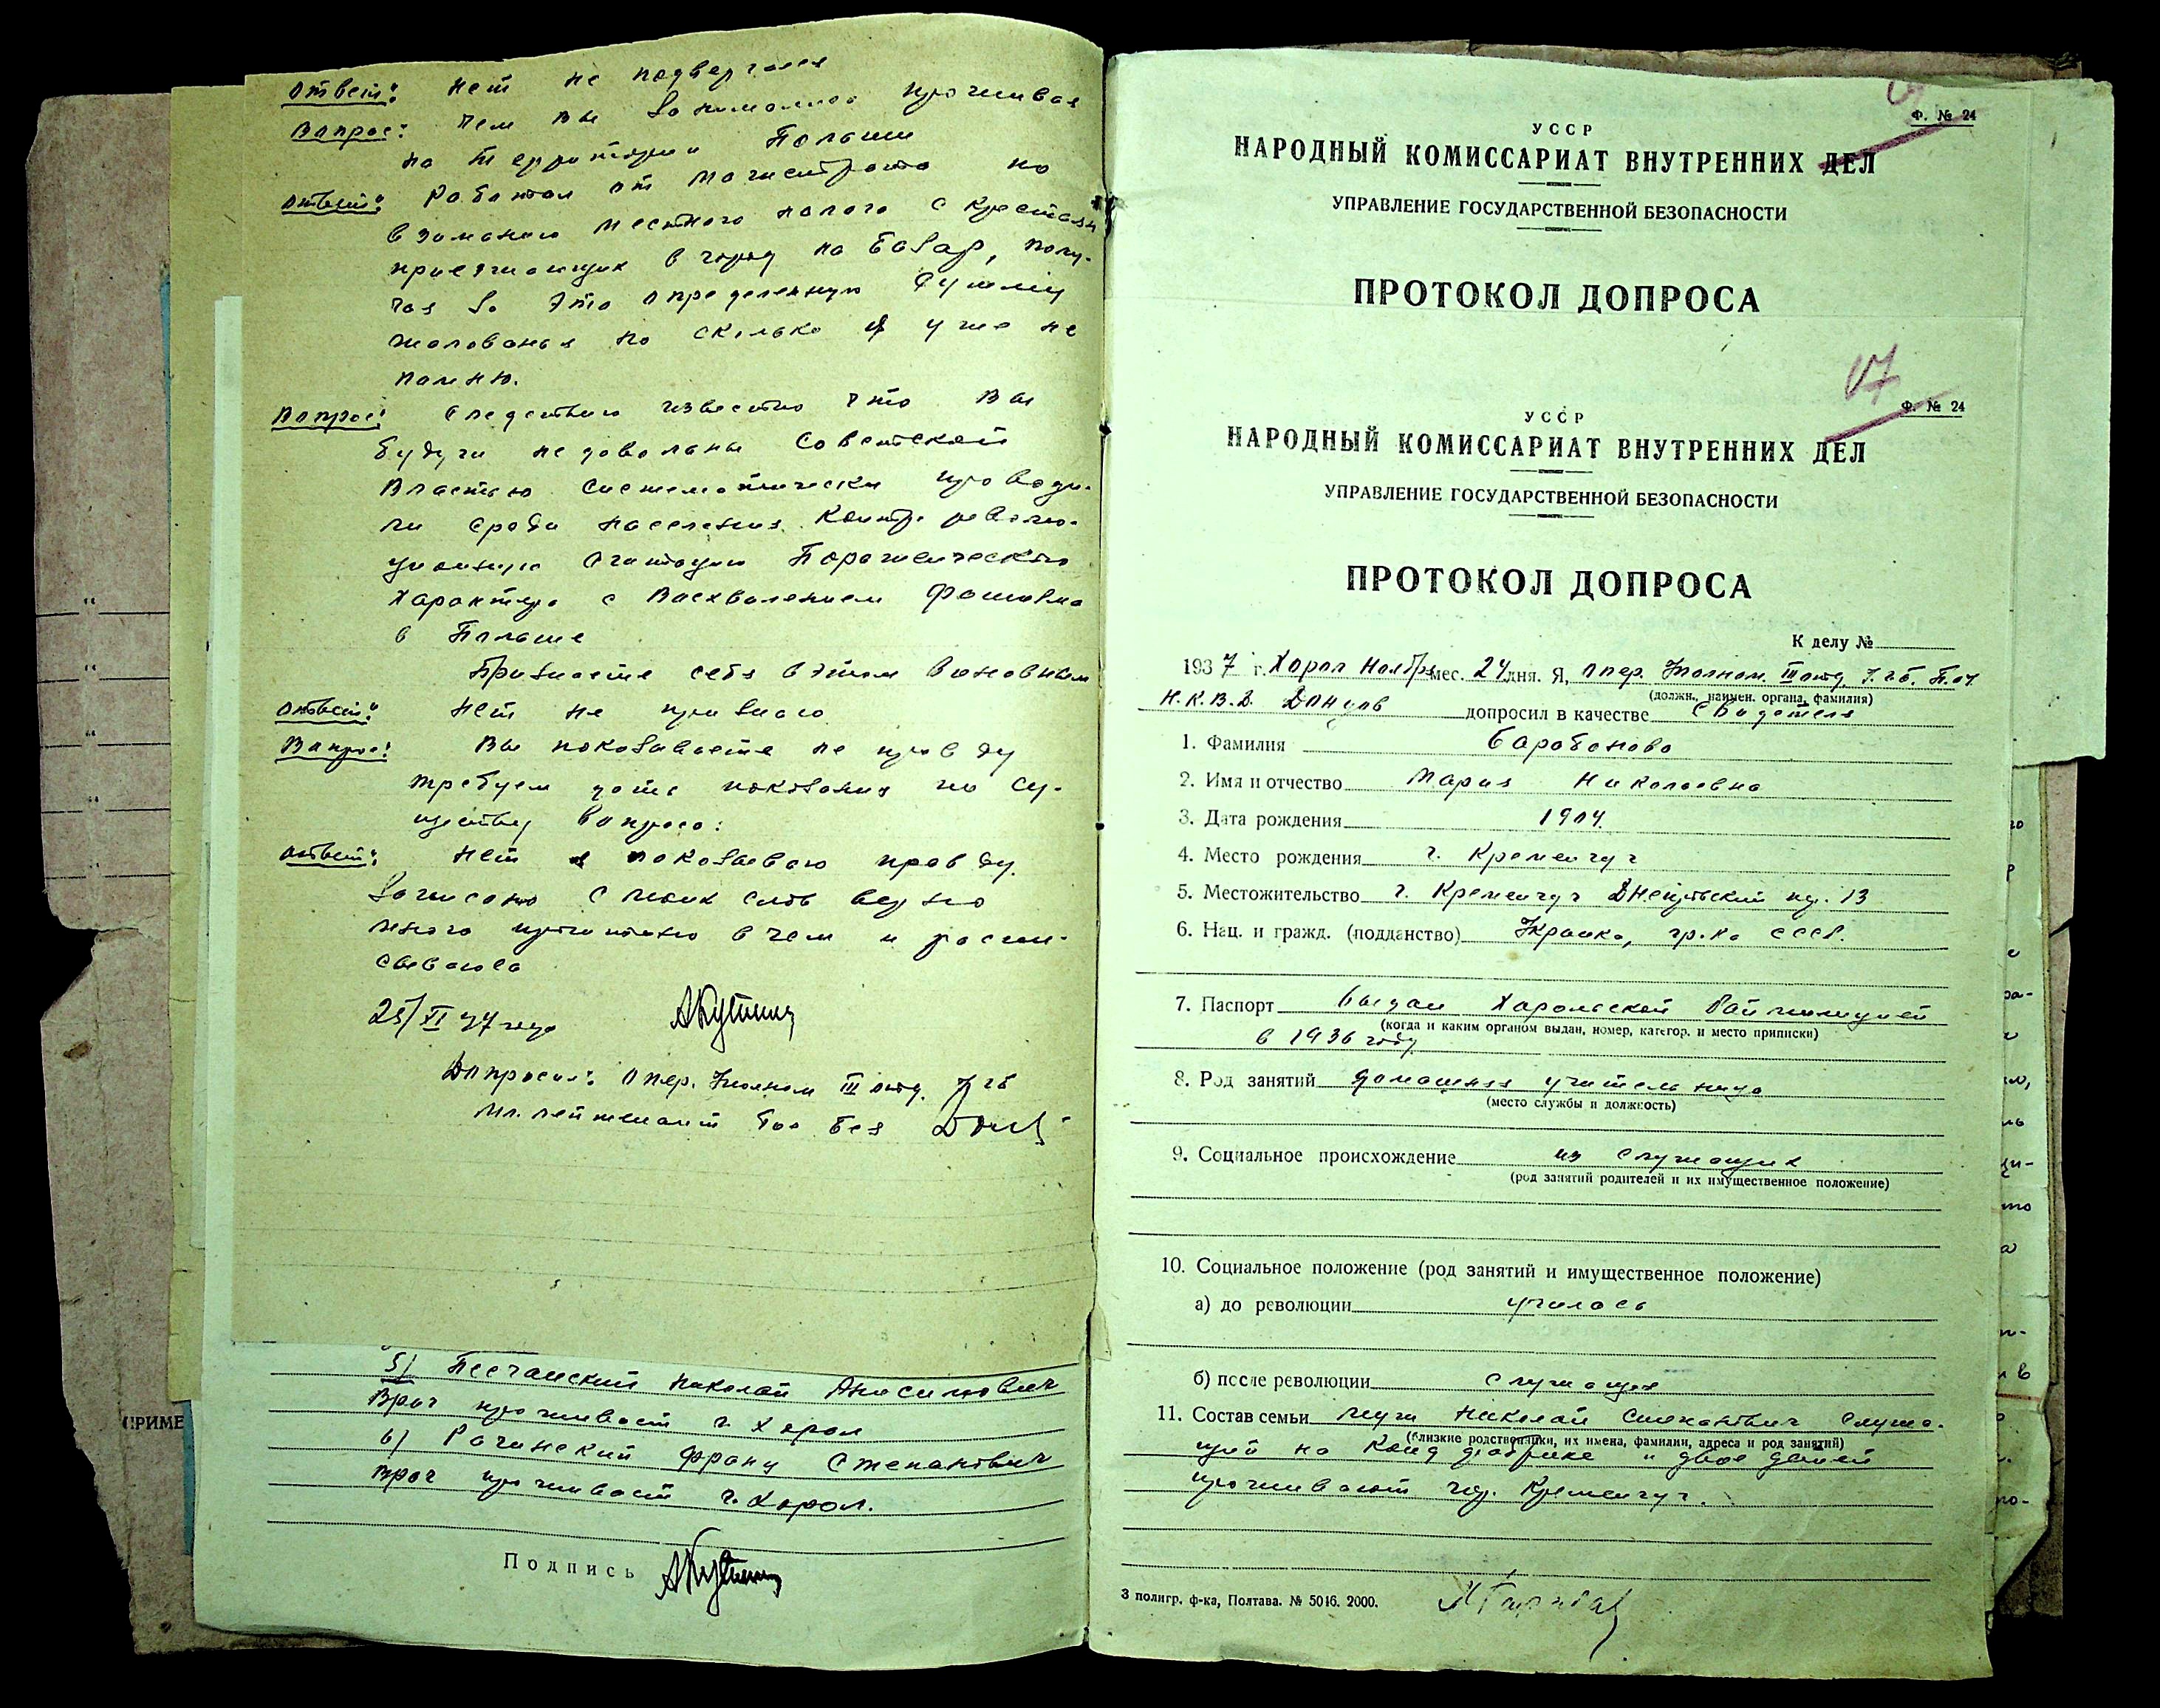 Ответ: Нет не подвергался
Вопрос: Чем вы занимались проживая
на территории Польши
Ответ: Работал от магистрата по
взиманию местного налога с крестьян
приезжающих в город на базар, полу-
чая за это определенную сумму
жалованья но сколько я уже не
помню.
Вопрос: Следствию известно что вы
будучи недовольны советской
властью систематически проводи-
ли среди населения контр револю-
ционную агитацию пораженческого
характера с восхвалением фашизма
в Польше
Признаете себя в этом виновным
Ответ: Нет не признаю
Вопрос: Вы показываете не правду
требуем дать показания по су-
ществу вопроса:
Ответ: Нет я показываю правду.
Записано с моих слов верно
мною прочитано в чем и распи-
сываюсь
25/XI 37 года
Допросил: Опер. Уполном III отд. УГБ
Мл. лейтенант Гос Без
5) Песчанский Николай Анисимович
Врач проживает г. Хорол
6) Рачинский Франц Степанович
Врач проживает г. Хорол.
Подпись
ПРИМЕ
Ф. № 24
УССР
НАРОДНЫЙ КОМИССАРИАТ ВНУТРЕННИХ ДЕЛ
УПРАВЛЕНИЕ ГОСУДАРСТВЕННОЙ БЕЗОПАСНОСТИ
ПРОТОКОЛ ДОПРОСА
Ф. № 24
УССР
НАРОДНЫЙ КОМИССАРИАТ ВНУТРЕННИХ ДЕЛ
УПРАВЛЕНИЕ ГОСУДАРСТВЕННОЙ БЕЗОПАСНОСТИ
ПРОТОКОЛ ДОПРОСА
К делу №
1937 г. Хорол Ноябрь мес. 24 дня. Я, Опер. Уполном. III отд У.Г.Б.
(должн., наимен. органа, фамилия)
Н.К.В.Д. допросил в качестве Свидетеля
1. Фамилия Барабонова
2. Имя и отчество Мария Николаевна
3. Дата рождения 1904.
4. Место рождения г. Кременчуг
5. Местожительство г. Кременчуг Днепровский пр. 13
6. Нац. и гражд. (подданство) Украинка, гр.ка СССР.
7. Паспорт Выдан Харольской Раймилицией
(когда и каким органом выдан, номер, категор. и место приписки)
в 1936 году
8. Род занятий домашняя учительница
(место службы и должность)
9. Социальное происхождение из служащих
(род занятий родителей и их имущественное положение)
10. Социальное положение (род занятий и имущественное положение)
а) до революции училась
б) после революции служащая
11. Состав семьи муж Николай Степанович служа-
(близкие родственники, их имена, фамилии, адреса и род занятий)
щий на Конд фабрике и двое детей
проживают гор. Кременчуг.
3 полигр. ф-ка, Полтава. № 5016. 2000.